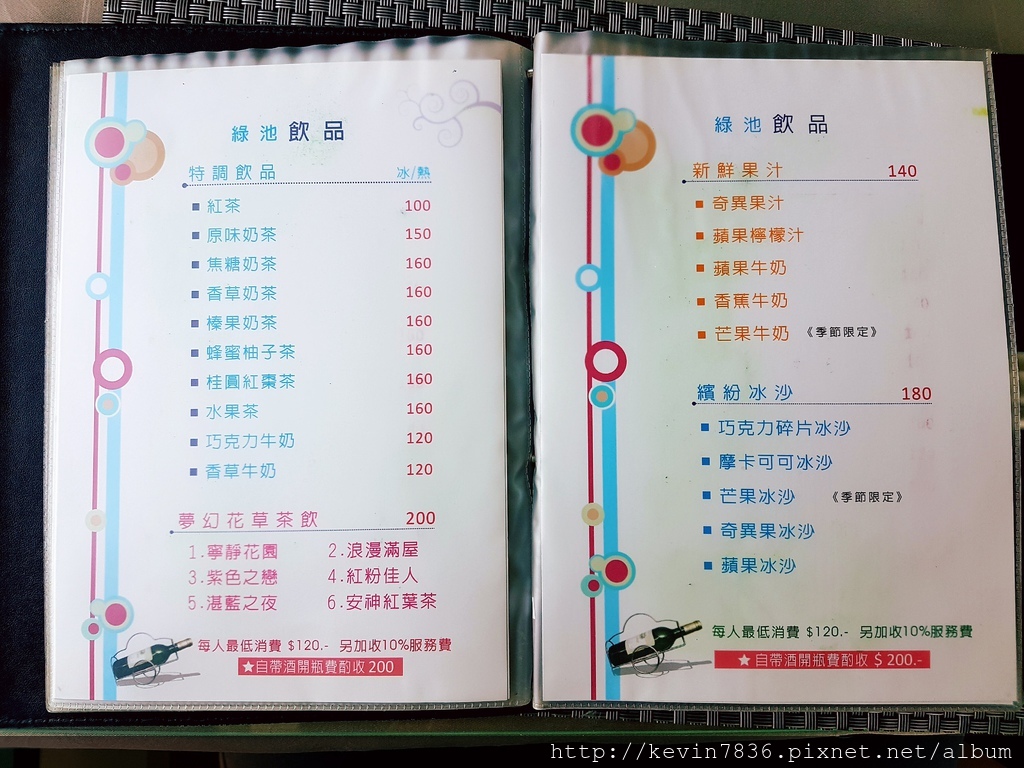 綠池飲品
特調飲品 冰/熱
■ 紅茶 100
■ 原味奶茶 150
■ 焦糖奶茶 160
■ 香草奶茶 160
■ 榛果奶茶 160
■ 蜂蜜柚子茶 160
■ 桂圓紅棗茶 160
■ 水果茶 160
■ 巧克力牛奶 120
■ 香草牛奶 120
夢幻花草茶飲 200
1.寧靜花園 2.浪漫滿屋
3.紫色之戀 4.紅粉佳人
5.湛藍之夜 6.安神紅葉茶
每人最低消費 $120.- 另加收10%服務費
★自帶酒開瓶費酌收 200
綠池飲品
新鮮果汁 140
■ 奇異果汁
■ 蘋果檸檬汁
■ 蘋果牛奶
■ 香蕉牛奶
■ 芒果牛奶 《季節限定》
繽紛冰沙 180
■ 巧克力碎片冰沙
■ 摩卡可可冰沙
■ 芒果冰沙 《季節限定》
■ 奇異果冰沙
■ 蘋果冰沙
每人最低消費 $120.- 另加收10%服務費
★自帶酒開瓶費酌收 $200.-
http://kevin7836.pixnet.net/album